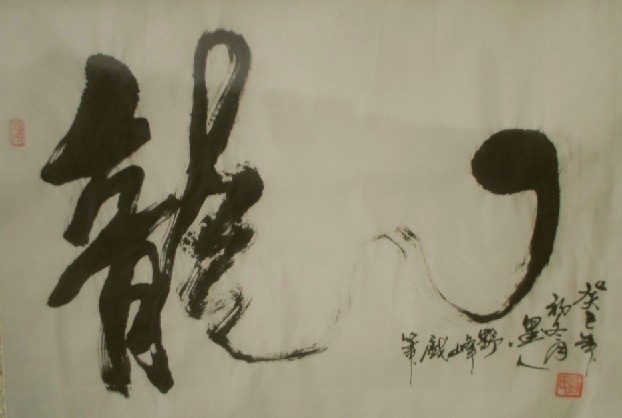 龍
癸巳年
初冬月
墨人
野峰戲筆